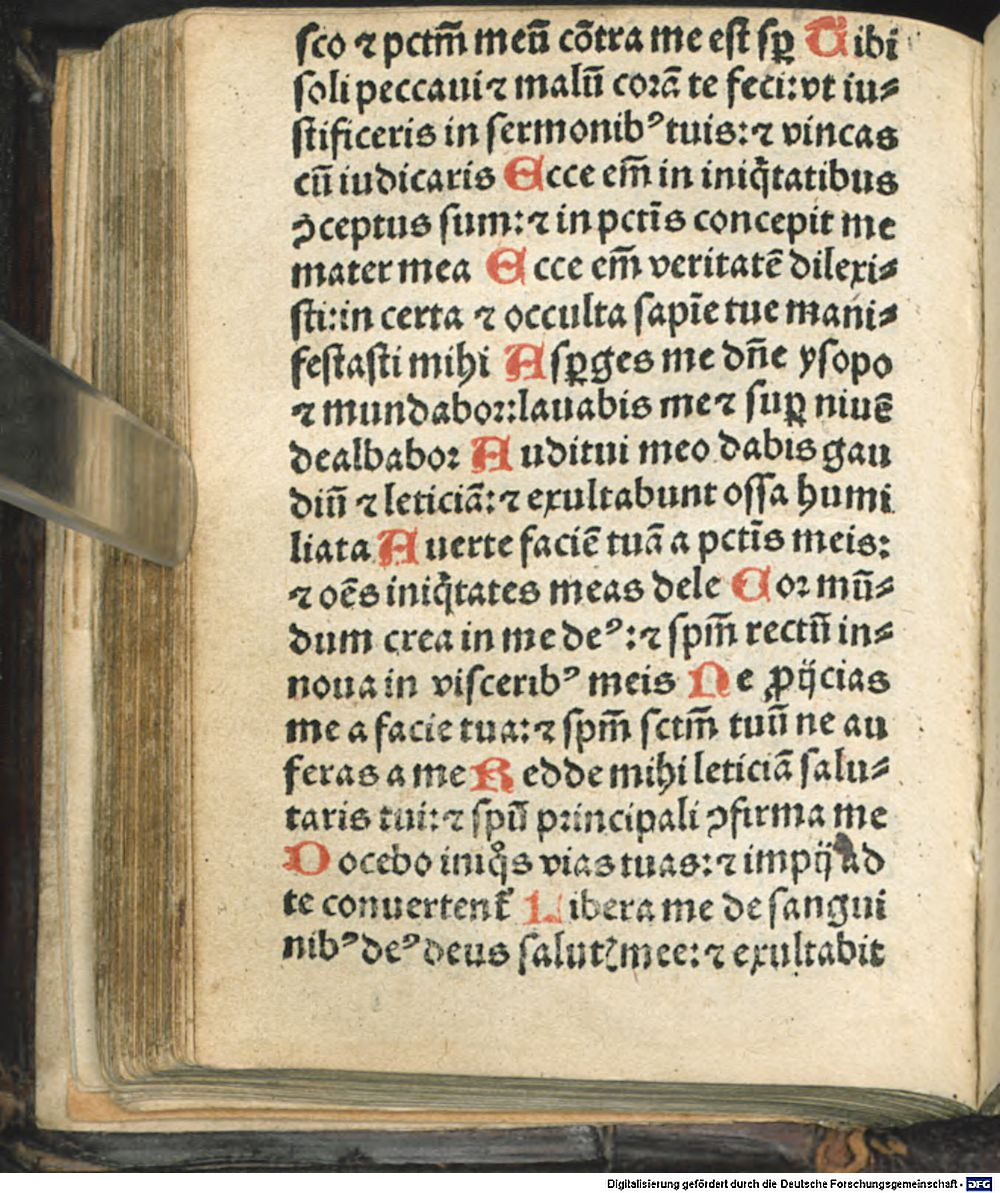 sco ⁊ pctm̄ meū cōtra me est sꝑ Tibi
soli peccaui ⁊ malū corā te feci: vt iu⸗
stificeris in sermonibꝰ tuis: ⁊ vincas
cū iudicaris Ecce em̄ in iniq̄tatibus
ↄceptus sum: ⁊ in pctīs concepit me
mater mea Ecce em̄ veritatē dilexi⸗
sti: in certa ⁊ occulta sapīe tue mani⸗
festasti mihi Asꝑges me dn̄e ysopo
⁊ mundabor: lauabis me ⁊ suꝑ niuē
dealbabor Auditui meo dabis gau
diū ⁊ leticiā: ⁊ exultabunt ossa humi
liata Auerte faciē tuā a pctīs meis:
⁊ oēs iniq̄tates meas dele Cor mū⸗
dum crea in me deꝰ: ⁊ spm̄ rectū in⸗
noua in visceribꝰ meis Ne ꝓijcias
me a facie tua: ⁊ spm̄ sctm̄ tuū ne au
feras a me Redde mihi leticiā salu⸗
taris tui: ⁊ spū principali ↄfirma me
Docebo iniqͦs vias tuas: ⁊ impij ad
te conuertent̃ Libera me de sangui
nibꝰ deꝰ deus salutꝭ mee: ⁊ exultabit
Digitalisierung gefördert durch die Deutsche Forschungsgemeinschaft - DFG